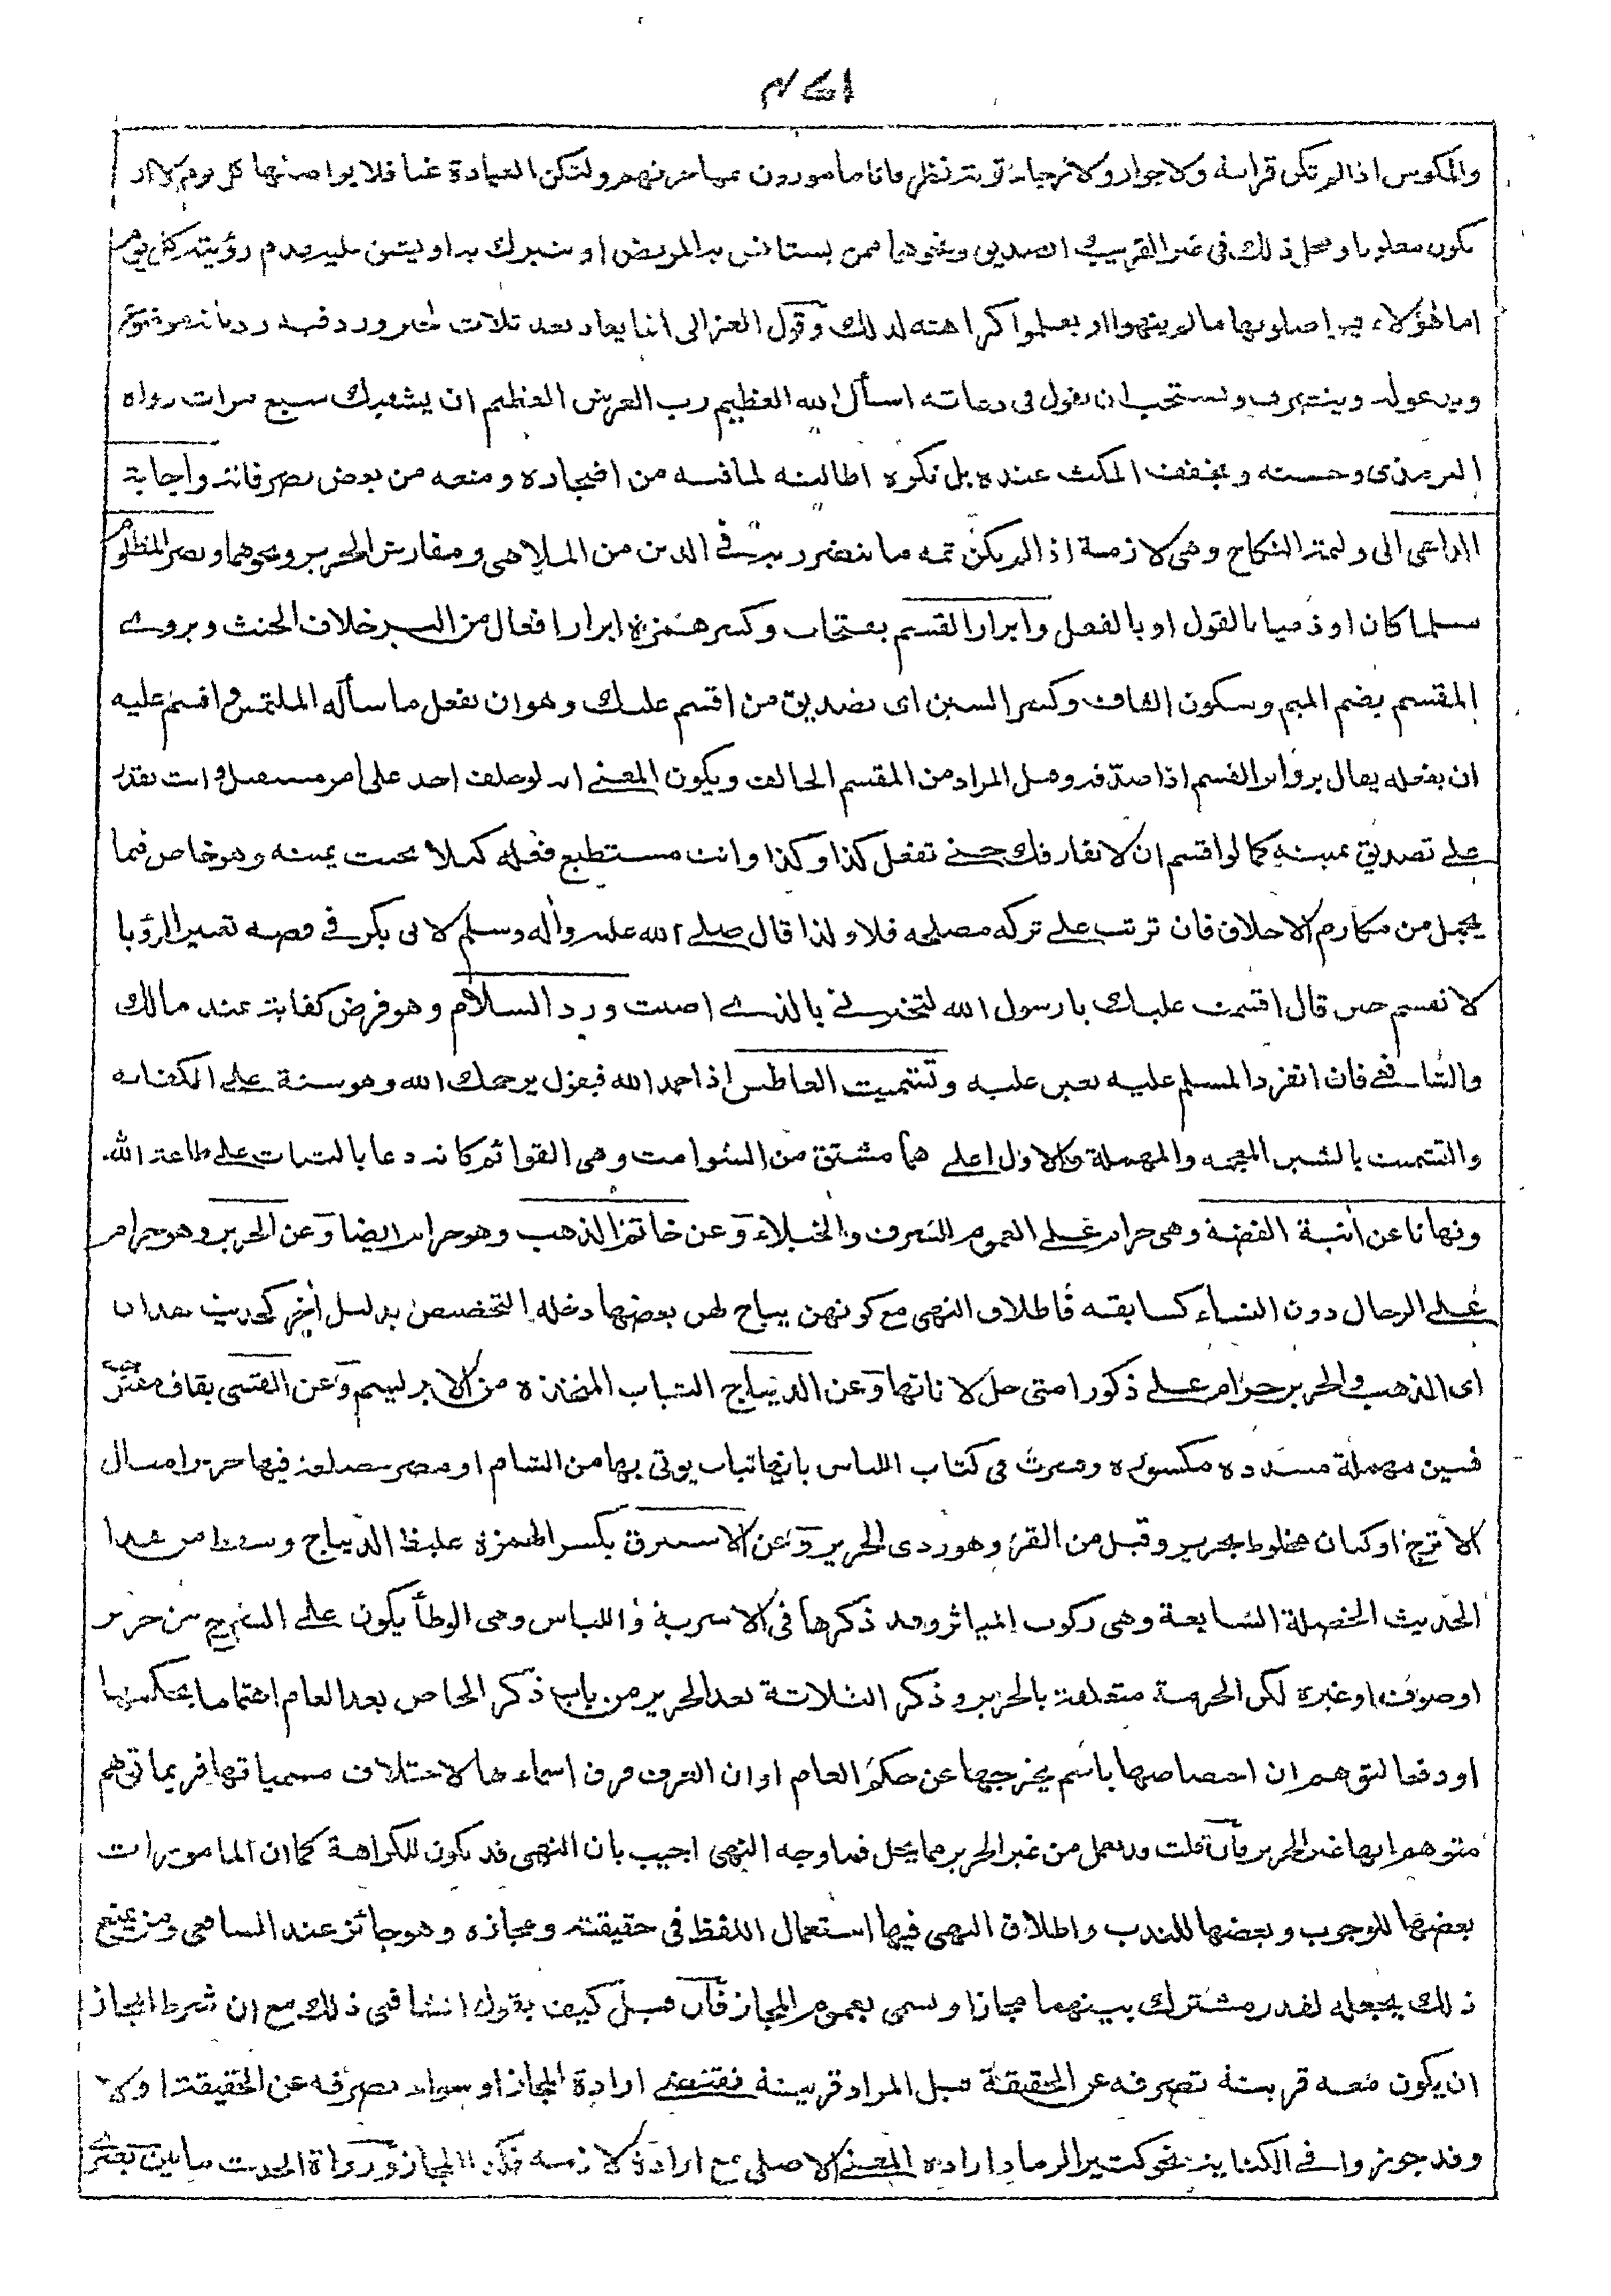 والمكوس اذا لم تكن قرابة ولا جوار ولا رجاء توبته نظر فانا مأمورون بمهاجرتهم ولتكن العيادة غبا فلا يواصلها كل يوم الا ان
يكون مغلوبا ومحل ذلك في غير القريب والصديق ونحوهما ممن يستأنس به المريض او يتبرك به او يشق عليه عدم رؤيته كل يوم
اما هؤلاء فيواصلونها ما لم ينهوا او يعلموا كراهته لذلك وقول الغزالى انما يعاد بعد ثلاث لخبر ورد فيه رد بانه موضوع
ويدعو له وينصرف ويستحب ان يقول فى دعائه اسأل الله العظيم رب العرش العظيم ان يشفيك سبع مرات رواه
الترمذى وحسنه ويخفف المكث عنده بل تكره اطالته لما فيه من اضجاره ومنعه من بعض تصرفاته واجابة
الداعى الى وليمة النكاح وهى لازمة اذا لم يكن ثمه ما يتضرر به فى الدين من الملاهى ومفارش الحرير ونحوهما ونصر المظلوم
مسلما كان او ذميا بالقول او بالفعل وابرار القسم بفتحات وكسر همزة ابرار افعال من البر خلاف الحنث ويروى
المقسم بضم الميم وسكون القاف وكسر السين اى تصديق من اقسم عليك وهو ان تفعل ما سأله الملتمس واقسم عليه
ان يفعله يقال بر وابر القسم اذا صدقه وقيل المراد من المقسم الحالف ويكون المعنى انه لو حلف احد على امر مستقبل وانت تقدر
على تصديق يمينه كما لو اقسم ان لا يفارقك حتى تفعل كذا وكذا وانت مستطيع فعله كيلا يحنث يمينه وهو خاص فيما
يجمل من مكارم الاخلاق فان ترتب على تركه مصلحه فلا ولذا قال صلى الله عليه وآله وسلم لابى بكر فى قصه تعبير الرؤيا
لا تقسم حين قال اقسمت عليك يا رسول الله لتخبرنى بالذى اصبت ورد السلام وهو فرض كفاية عند مالك
والشافعى فان انفرد المسلم عليه تعين عليه وتشميت العاطس اذا حمد الله فيقول يرحمك الله وهو سنة على الكفايه
والتشميت بالشين المعجمه والمهملة والاول اعلى هما مشتق من الشوامت وهى القوائم كانه دعا بالثبات على طاعة الله
ونهانا عن آنية الفضة وهى حرام على العموم للسرف والخيلاء وعن خاتم الذهب وهو حرام ايضا وعن الحرير وهو حرام
على الرجال دون النساء كسابقه فاطلاق النهى مع كونهن يباح لهن بعضها دخله التخصيص بدليل آخر كحديث هذان
اى الذهب والحرير حرام على ذكور امتى حل لاناثها وعن الديباج الثياب المتخذه من الابريسم وعن القسى بقاف مفتوحة
فسين مهملة مشدده مكسوره وفسرت فى كتاب اللباس بانها ثياب يوتى بها من الشام او مصر مضلعة فيها حرير امثال
الاترنج او كتان مخلوط بحرير وقيل من القز وهو ردى الحرير وعن الاستبرق بكسر الهمزة غليظ الديباج وسقط من هذا
الحديث الخصلة السابعة وهى ركوب المياثر وقد ذكرها فى الاشربة واللباس وهى الوطأ يكون على السرج من حرير
او صوف او غيره لكن الحرمة متعلقة بالحرير وذكر الثلاثة بعد الحرير من باب ذكر الخاص بعد العام اهتماما بحكمها
او دفعا لتوهم ان اختصاصها باسم يخرجها عن حكم العام او ان العرف فرق اسماءها لاختلاف مسمياتها فربما توهم
متوهم انها غير الحرير فان قلت ويعمل من غير الحرير مما يحل فما وجه النهى اجيب بان النهى قد يكون للكراهة كما ان المامورات
بعضها للوجوب وبعضها للندب واطلاق النهى فيها استعمال اللفظ فى حقيقته ومجازه وهو جائز عند الشافعى ومن يمنع
ذلك يجعله لقدر مشترك بينهما مجازا ويسمى بعموم المجاز فان قيل كيف يقول الشافعى ذلك مع ان شرط المجاز
ان يكون معه قرينة تصرفه عن الحقيقة قيل المراد قرينة تقتضى ارادة المجاز او سواء تصرفه عن الحقيقة او لا
وقد جوزوا فى الكناية نحو كثير الرماد ارادة المعنى الاصلى مع ارادة لازمه فكذا المجاز ورواة الحديث ما بين بصرى